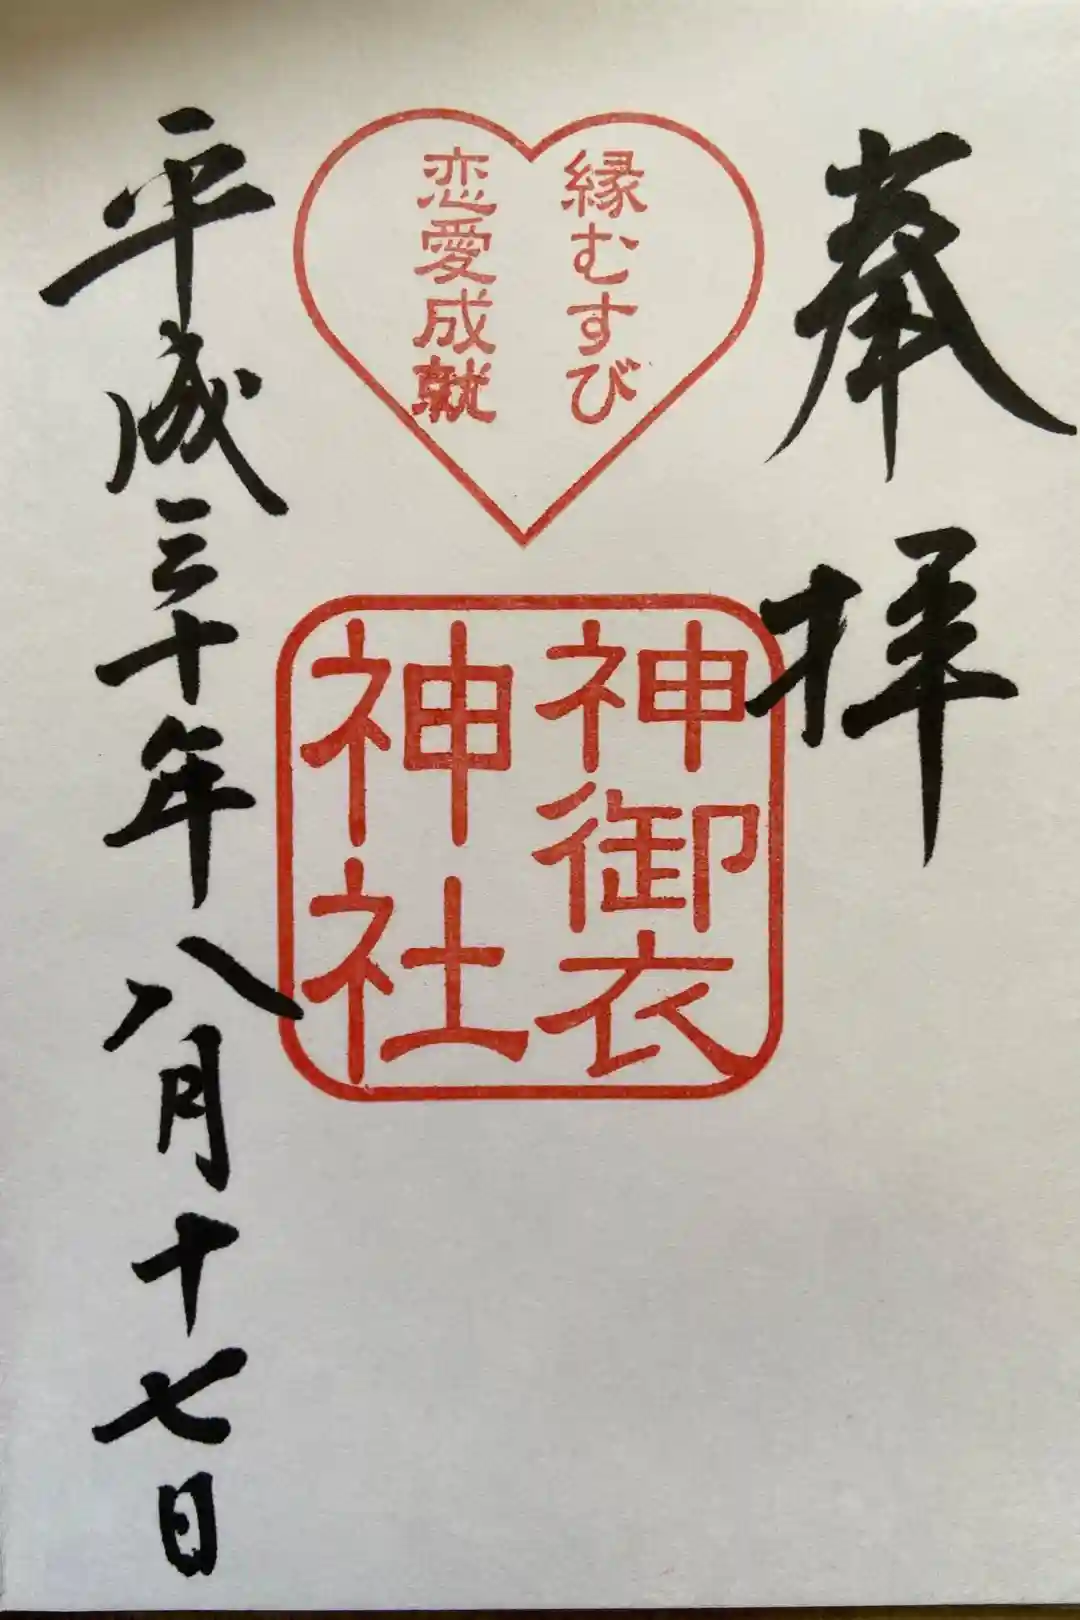 奉拝
縁むすび
恋愛成就
神御衣
神社
平成三十年八月十七日